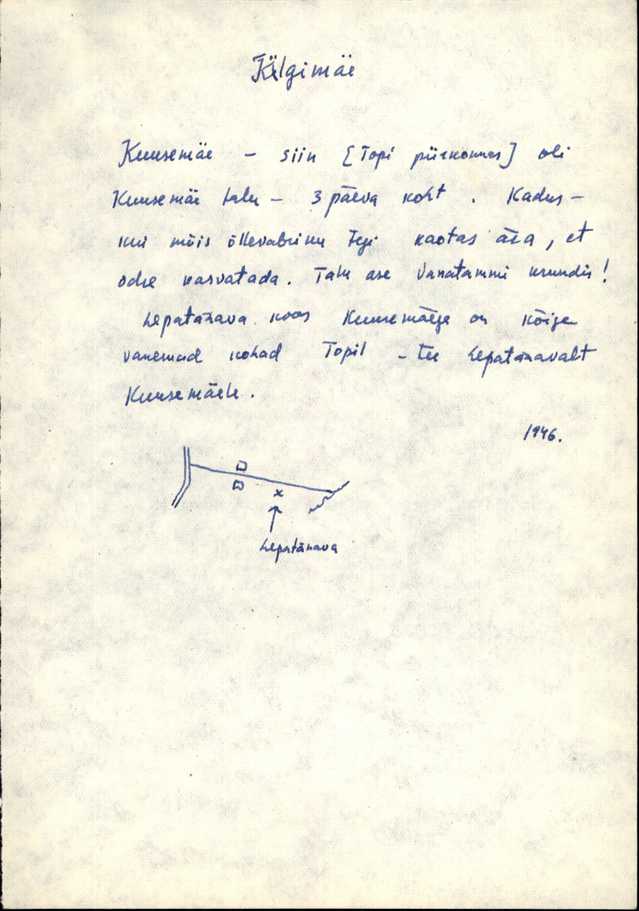 Kälgimäe
Kuusemäe – siin [Topi piirkonnas] oli
Kuusemäe talu – 3 päeva koht. Kadus –
kui mõis õllevabriku tegi kaotas ära, et
odre kasvatada. Talu ase Vanatammi krundis!
Lepatänava koos Kuusemäega on kõige
vanemad kohad Topil – tee Lepatänavalt
Kuusemäele.
1946.
Lepatänava